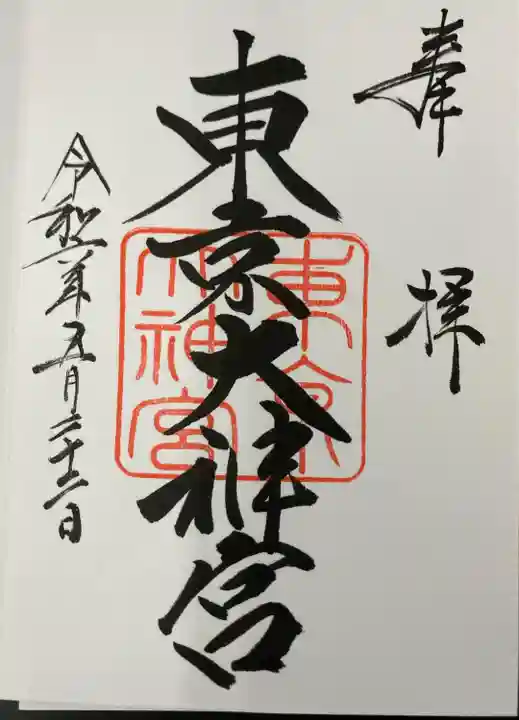 奉拝
東京大神宮
東京
大神宮
令和年五月二十二日